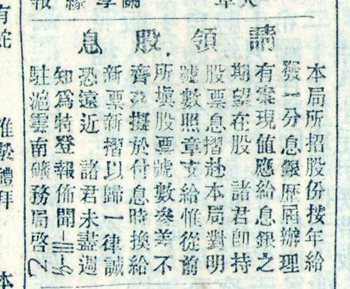 請領股息
本局所招股份按年給
發一分息銀歷屆辦理
有案現値應給息銀之
期望在股　諸君即持
股票息摺赴本局對明
號數照章支給惟從前
所塡股票號數參差不
齊茲擬於付息時換給
新票新摺以歸一律誠
恐遠近　諸君未盡週
知爲特登報佈聞
駐滬雲南礦務局啓